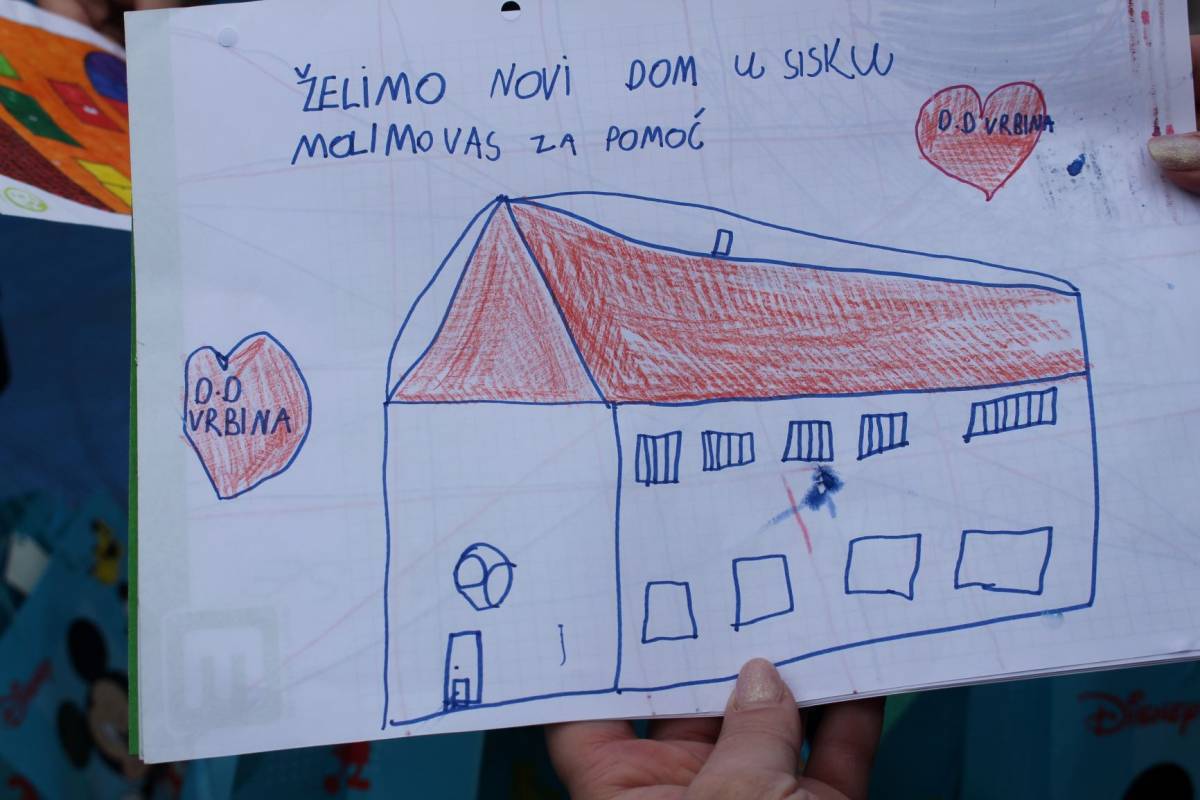 ŽELIMO NOVI DOM U SISKU
MOLIMO VAS ZA POMOĆ
D.D VRBINA
D.D
VRBINA
Disney
Disney